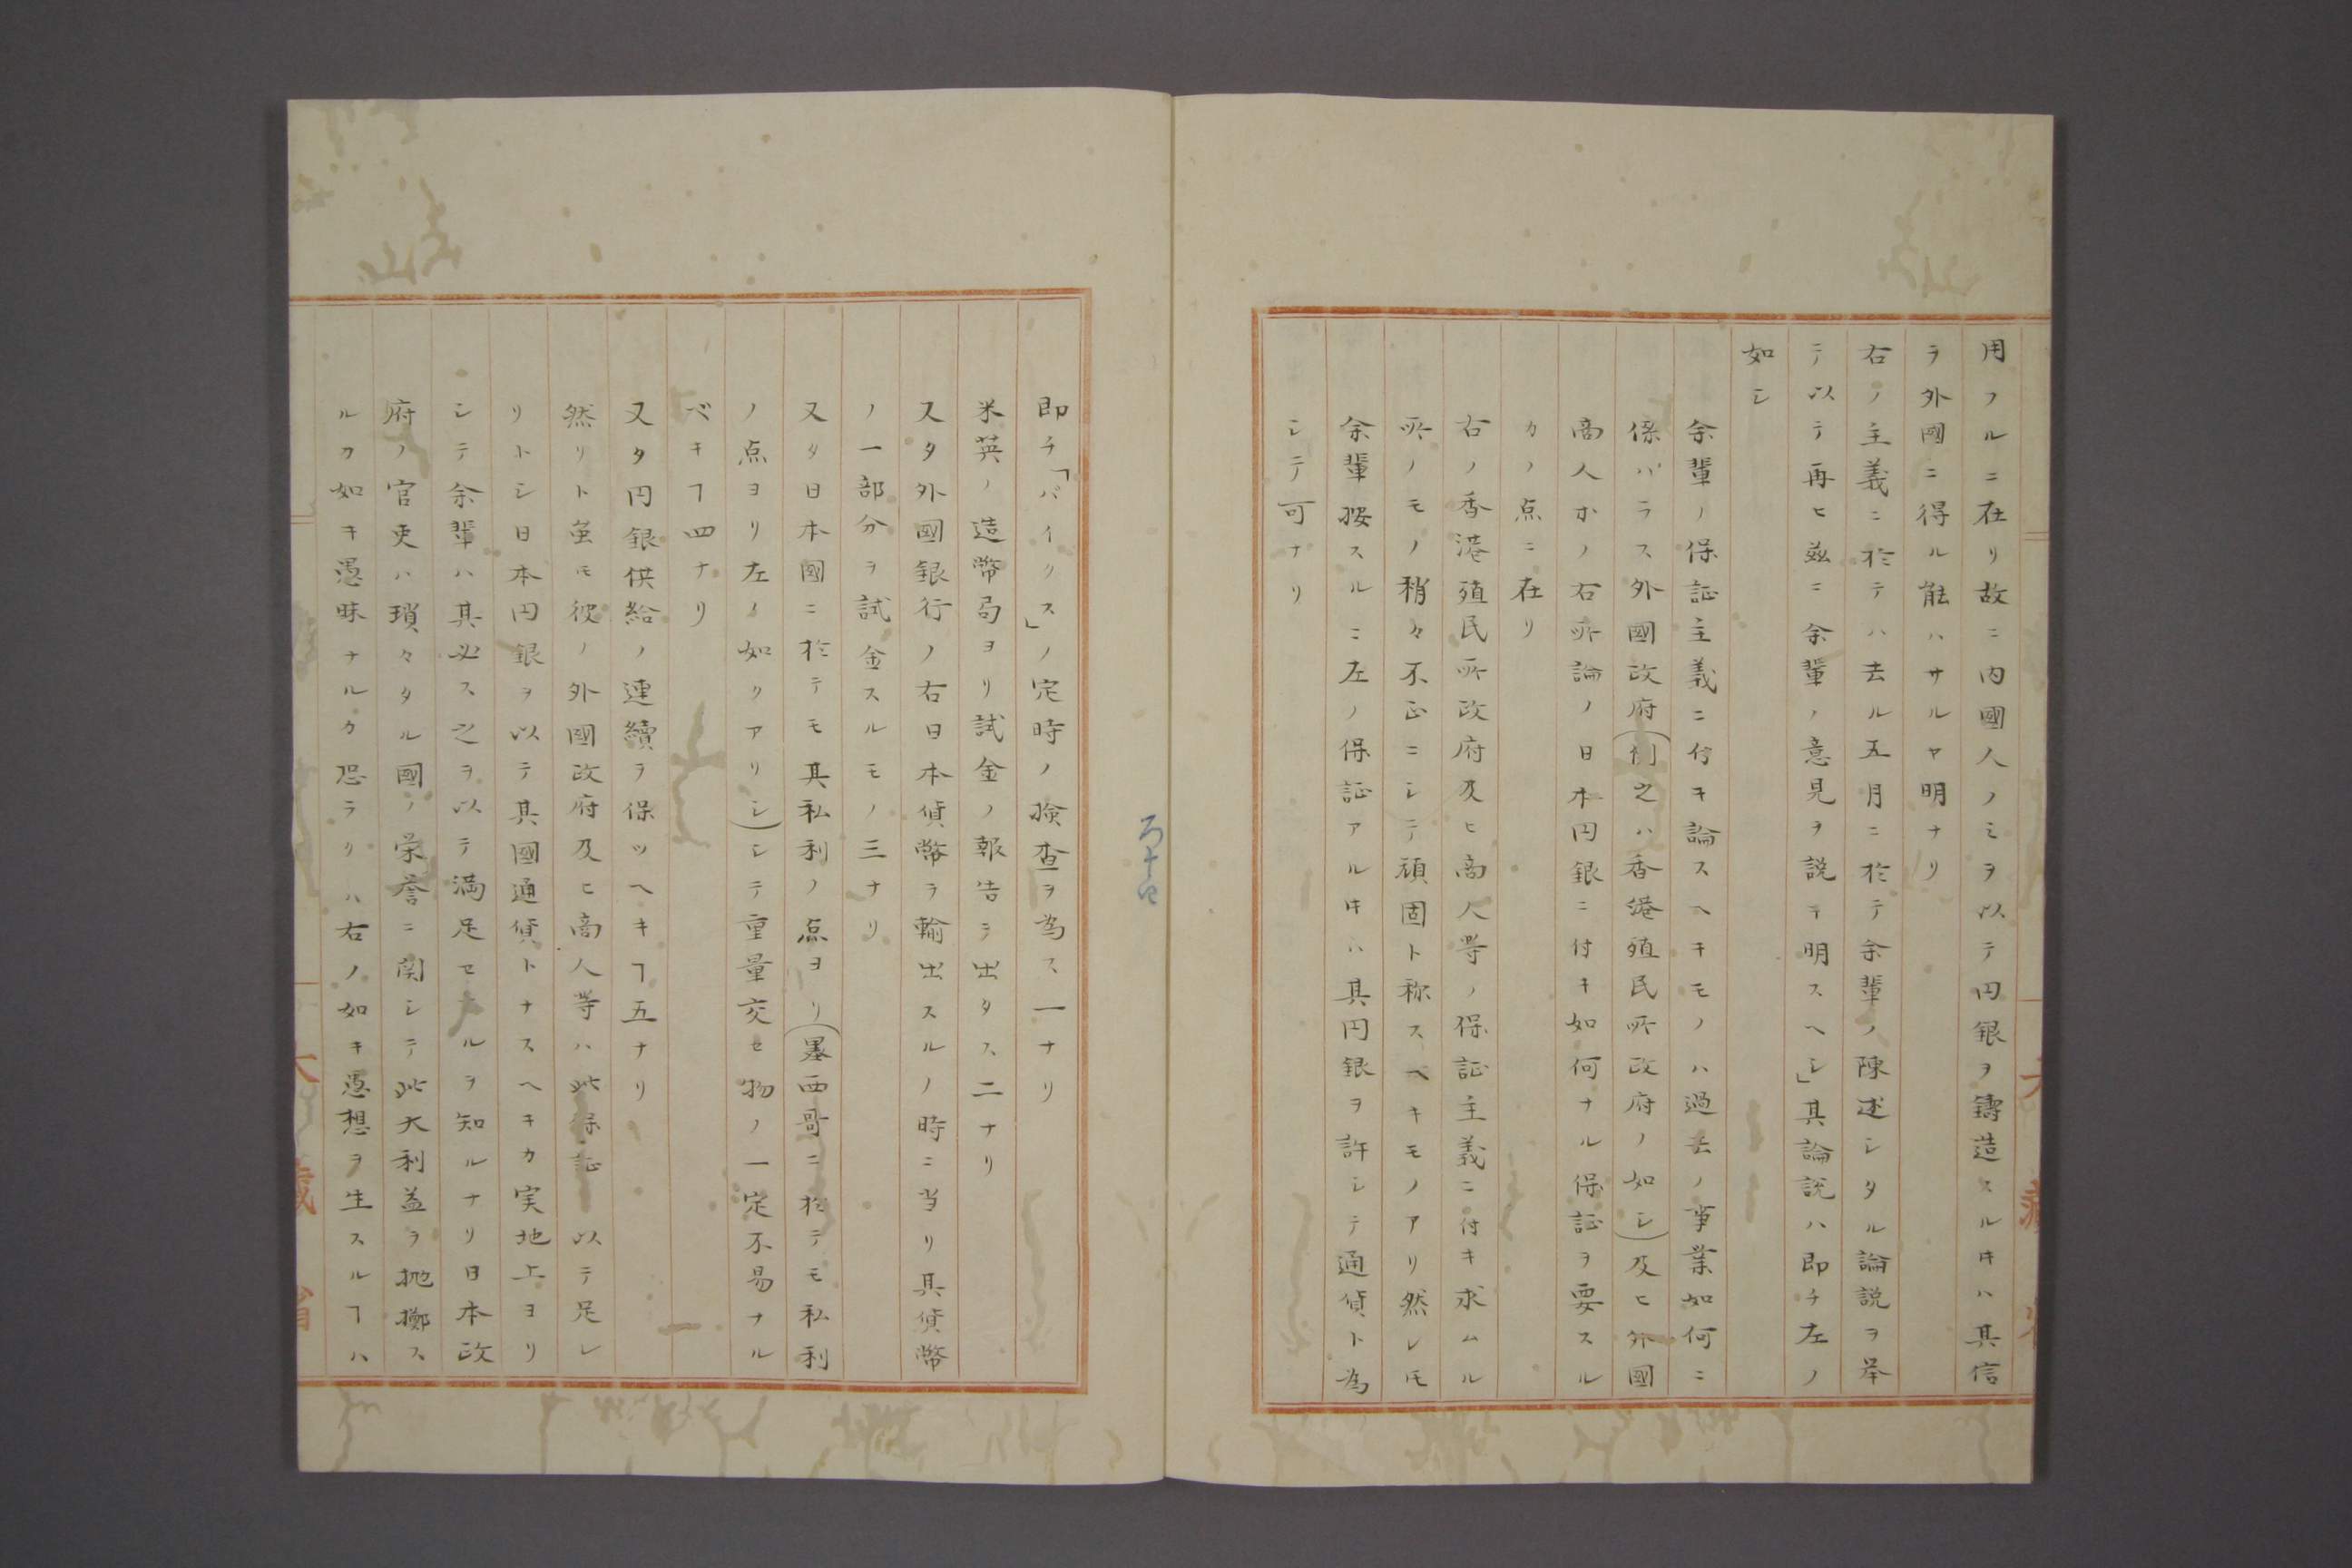 用フルニ在リ故ニ内國人ノミヲ以テ円銀ヲ鑄造スルヿハ其信
ヲ外國ニ得ル能ハサルヤ明ナリ
右ノ主義ニ於テハ去ル五月ニ於テ余輩ノ陳述シタル論説ヲ挙
テ以テ再ヒ茲ニ余輩ノ意見ヲ説テ明スヘシ」其論説ハ即チ左ノ
如シ
余輩ノ保証主義ニ付キ論スヘキモノハ過去ノ事業如何ニ
係ハラス外國政府(例之ハ香港殖民所政府ノ如シ)及ヒ外國
商人ホノ右所論ノ日本円銀ニ付キ如何ナル保証ヲ要スル
カノ点ニ在リ
右ノ香港殖民所政府及ヒ商人等ノ保証主義ニ付キ求ムル
所ノモノ稍々不正ニシテ頑固ト称スヘキモノアリ然レ𪜈
余輩按スルニ左ノ保証アルキハ其円銀ヲ許シテ通貨ト為
シテ可ナリ
即チ「バイクス」ノ定時ノ撿査ヲ為ス一ナリ
米英ノ造幣局ヨリ試金ノ報告ヲ出タス二ナリ
又タ外國銀行ノ右日本貨幣ヲ輸出スルノ時ニ当リ其貨幣
ノ一部分ヲ試金スルモノ三ナリ
又タ日本國ニ於テモ其私利ノ点ヨリ(墨西哥ニ於テモ私利
ノ点ヨリ左ノ如クアリシ)シテ重量交セ物ノ一定不易ナル
ベキヿ四ナリ
又タ円銀供給ノ連續ヲ保ツヘキヿ五ナリ
然リト虽モ彼ノ外國政府及ヒ商人等ハ此保証以テ足レ
リトシ日本円銀ヲ以テ其國通貨トナスヘキカ実地上ヨリ
シテ余輩ハ其必ス之ヲ以テ満足セルヲ知ルナリ日本政
府ノ官吏ハ瑣々タル國ノ栄誉ニ関シテ此大利益ヲ抛擲ス
ルカ如キ愚昧ナルカ恐ラクハ右ノ如キ愚想ヲ生スルヿハ
ろ十四
大藏省